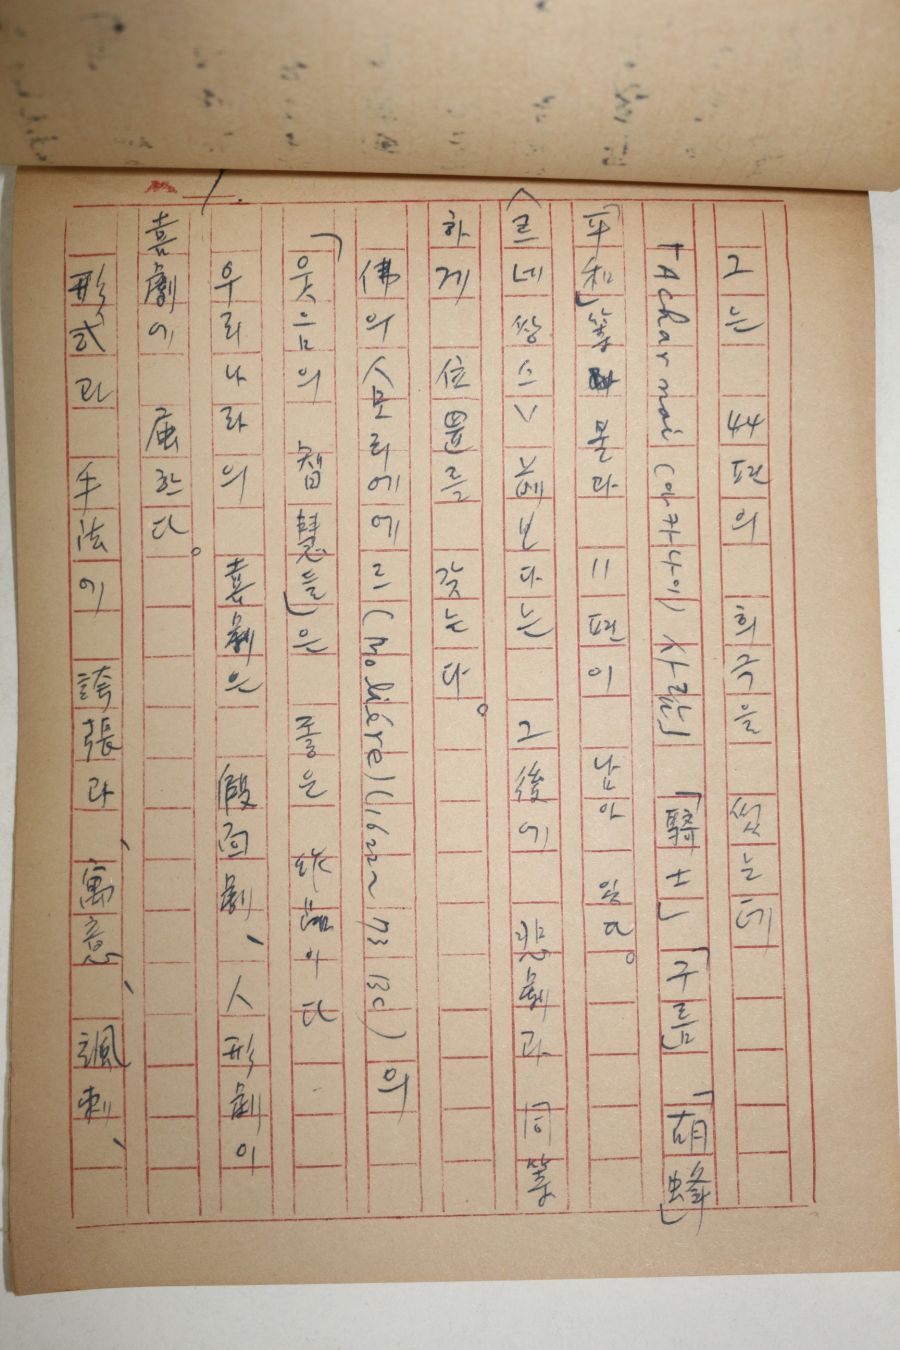 7.
그는 44편의 희극을 썼는데
「Acharnai (아카나이) 사람」 「騎士」 「구름」 「胡蜂」
「平和」等 물과 11편이 남아 있다。
〈르네쌍스〉 베보다는 그 後에 悲劇과 同等
하게 位置를 갖는다。
佛의 人 모리에에르 (Moliére) (1622~73 BC) 의
「웃음의 智慧들」은 좋은 作品이다
우리나라의 喜劇은 假面劇、人形劇이
喜劇에 屬한다。
形式과 手法이 誇張과、寓意、諷刺、